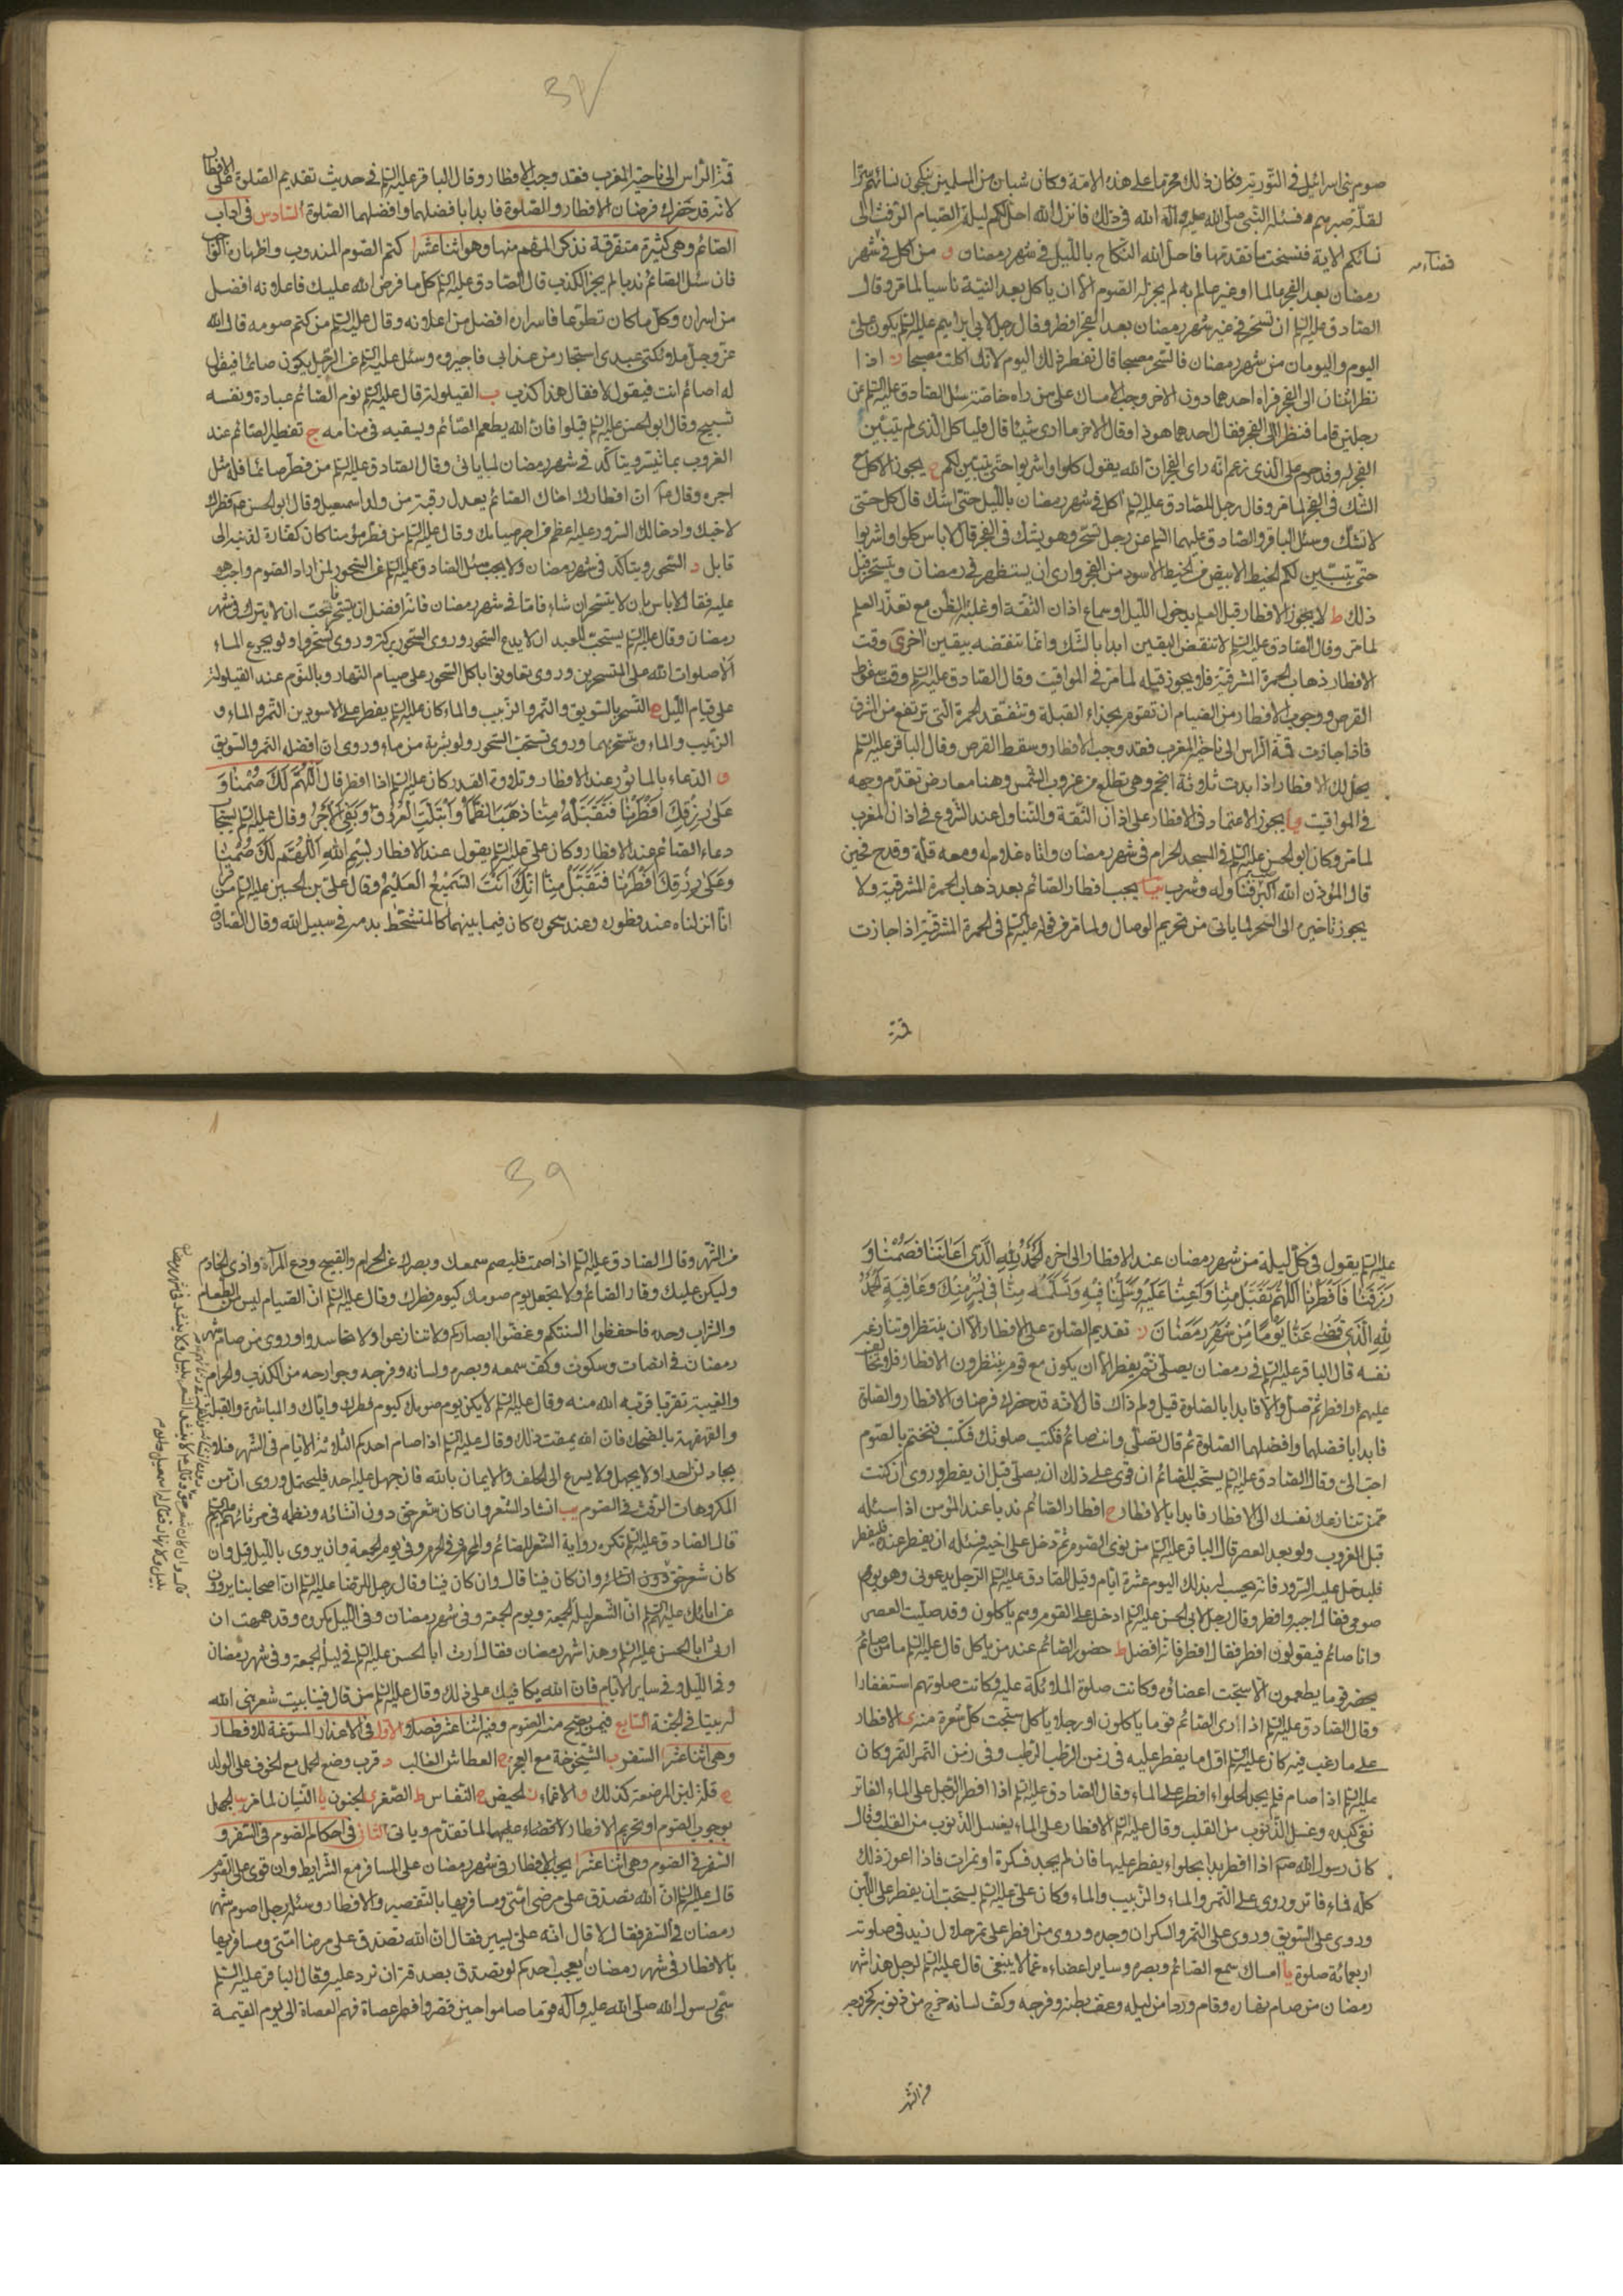 صوم بنى اسرائيل فى التورية فكان ذلك محرما على هذه الامة وكان شبان من المسلمين ينكحون نسائهم سرا
لقلة صبرهم فسئله النبى صلى الله عليه وآله الله فى ذلك فانزل الله احل لكم ليلة الصيام الرفث الى
نسائكم الاية فنسخت ما تقدمتها فاحل الله النكاح بالليل فى شهر رمضان و من اكل فى شهر
قضاء
رمضان بعد الفجر عالما او غير عالم به لم يجز له الصوم الا ان ياكل بعد النية ناسيا لما مر وقال
الصادق عليه السلام ان تسحر فى غير شهر رمضان بعد الفجر افطر وقال رجل لابى ابراهيم عليه السلام يكون على
اليوم واليومان من شهر رمضان فاتسحر مصبحا قال تفطر ذلك اليوم لانك اكلت مصبحا ز اذا
نظر اثنان الى الفجر فراه احدهما دون الاخر وجب الامساك على من راه خاصة سئل الصادق عليه السلام عن
رجلين قاما فنظرا الى الفجر فقال احدهما هو ذا وقال الاخر ما ارى شيئا قال فلياكل الذى لم يتبين
الفجر له وقد حرم على الذى زعم انه راى الفجر ان الله يقول كلوا واشربوا حتى يتبين لكم ح يجوز الاكل مع
الشك فى الفجر لما مر وقال رجل للصادق عليه السلام اكل فى شهر رمضان بالليل حتى اشك قال كل حتى
لا تشك وسئل الباقر والصادق عليهما السلام عن رجل تسحر وهو يشك فى الفجر قال لا باس كلوا واشربوا
حتى يتبين لكم الخيط الابيض من الخيط الاسود من الفجر وارى ان يستظهر فى رمضان ويتسحر قبل
ذلك ط لا يجوز الافطار قبل العلم بدخول الليل او سماع اذان الثقة او غلبة الظن مع تعذر العلم
لما مر وقال الصادق عليه السلام لا تنقض اليقين ابدا بالشك وانما تنقضه بيقين اخر ى وقت
الافطار ذهاب الحمرة المشرقية فلا يجوز قبله لما مر فى المواقيت وقال الصادق عليه السلام وقت سقوط
القرص ووجوب الافطار من الصيام ان تقوم بحذاء القبلة وتتفقد الحمرة التى ترتفع من المشرق
فاذا جازت قمة الراس الى ناحية المغرب فقد وجب الافطار وسقط القرص وقال الباقر عليه السلام
يحل لك الافطار اذا بدت ثلاثة انجم وهى تطلع مع غروب الشمس وهنا معارض تقدم وجهه
فى المواقيت يا يجوز الاعتماد فى الافطار على اذان الثقة والتناول عند الشروع فى اذان المغرب
لما مر وكان ابو الحسن عليه السلام فى المسجد الحرام فى شهر رمضان واتاه غلام له ومعه قلة وقدح فحين
قال المؤذن الله اكبر فناوله وشرب يب يجب افطار الصائم بعد ذهاب الحمرة المشرقية ولا
يجوز تاخيره الى السحر لما ياتى من تحريم الوصال ولما مر فى قوله عليه السلام فى الحمرة المشرقية اذا جازت
قمة
قمة الراس الى ناحية المغرب فقد وجب الافطار وقال الباقر عليه السلام فى حديث تقديم الصلوة على الافطار
لانه قد حضرك فرضان الافطار والصلوة فابدا بافضلهما وافضلهما الصلوة السادس فى اداب
الصائم وهى كثيرة متفرقة نذكر المهم منها وهو اثنا عشر ا كتم الصوم المندوب واظهار الواجب
فان سئل الصائم ندبا لم يجز الكذب قال الصادق عليه السلام كل ما فرض الله عليك فاعلانه افضل
من اسراره وكل ما كان تطوعا فاسراره افضل من اعلانه وقال عليه السلام من كتم صومه قال الله
عز وجل ملائكتى عبدى استجار من عذابى فاجيروه وسئل عليه السلام عن الرجل يكون صائما فيقال
له اصائم انت فيقول لا فقال هذا كذب ب القيلولة قال عليه السلام نوم الصائم عبادة ونفسه
تسبيح وقال ابو الحسن عليه السلام قيلوا فان الله يطعم الصائم ويسقيه فى منامه ج تفطير الصائم عند
الغروب بما تيسر ويتاكد فى شهر رمضان لما ياتى وقال الصادق عليه السلام من فطر صائما فله مثل
اجره وقال ان افطارك اخاك الصائم يعدل رقبة من ولد اسمعيل وقال ابو الحسن فطرك
لاخيك وادخالك السرور عليه اعظم من اجر صيامك وقال عليه السلام من فطر مؤمنا كان كفارة لذنبه الى
قابل د السحور ويتاكد فى شهر رمضان ولا يجب سئل الصادق عليه السلام عن السحور لمن اراد الصوم واجب هو
عليه فقال لا باس بان لا يتسحر ان شاء فاما فى شهر رمضان فانه افضل ان يتسحر نحب ان لا يترك فى شهر
رمضان وقال عليه السلام يستحب للعبد ان لا يدع السحور وروى السحور بركة وروى تسحروا ولو بجرع الماء
الا صلوات الله على المتسحرين وروى تعاونوا باكل السحور على صيام النهار وبالنوم عند القيلولة
على قيام الليل ه التسحر بالسويق والتمر والزبيب والماء كان عليه السلام يفطر على الاسودين التمر والماء و
الزبيب والماء ويتسحر بهما وروى تستحب السحور ولو بشربة من ماء وروى ان افضله التمر والسويق
و الدعاء بالماثور عند الافطار وتلاوة القدر كان عليه السلام اذا افطر قال اللهم لك صمنا و
على رزقك افطرنا فتقبله منا ذهب الظما وابتلت العروق وبقى الاجر وقال عليه السلام يستجاب
دعاء الصائم عند الافطار وكان على عليه السلام يقول عند الافطار بسم الله اللهم لك صمنا
وعلى رزقك افطرنا فتقبل منا انك انت السميع العليم وقال على بن الحسين عليه السلام من قرا
انا انزلناه عند فطوره وعند سحوره كان فيما بينهما كالمتشحط بدمه فى سبيل الله وقال الصادق
عليه السلام يقول فى كل ليلة من شهر رمضان عند الافطار الى اخره الحمد لله الذى اعاننا فصمنا و
رزقنا فافطرنا اللهم تقبل منا واعنا عليه وسلمنا فيه وتسلمه منا فى يسر منك وعافية الحمد
لله الذى قضى عنا يوما من شهر رمضان ز تقديم الصلوة على الافطار الا ان ينتظر او تنازعه
نفسه قال الباقر عليه السلام فى رمضان يصلى ثم يفطر الا ان يكون مع قوم ينتظرون الافطار فلا تخالف
عليهم وافطر ثم صل والا فابدا بالصلوة قيل ولم ذاك قال لانه قد حضرك فرضان الافطار والصلوة
فابدا بافضلهما وافضلهما الصلوة ثم قال تصلى وانت صائم فتكتب صلوتك فتختم بالصوم
احب الى وقال الصادق عليه السلام يستحب للصائم ان قوى على ذلك ان يصلى قبل ان يفطر وروى ان كنت
ممن تنازعك نفسك الى الافطار فابدا بالافطار ح افطار الصائم ندبا عند المؤمن اذا سئله
قبل الغروب ولو بعد العصر قال الباقر عليه السلام من نوى الصوم ثم دخل على اخيه فسئله ان يفطر عنده فليفطر
فليدخل عليه السرور فانه يحسب له بذلك اليوم عشرة ايام وقيل للصادق عليه السلام الرجل يدعونى وهو يوم
صومى فقال اجبه وافطر وقال رجل لابى الحسن عليه السلام ادخل على القوم وهم ياكلون وقد صليت العصر
وانا صائم فيقولون افطر فقال افطر فانه افضل ط حضور الصائم عند من ياكل قال عليه السلام ما من صائم
يحضر قوما يطعمون الا سبحت اعضاؤه وكانت صلوة الملائكة عليه وكانت صلوتهم استغفارا
وقال الصادق عليه السلام اذا راى الصائم قوما ياكلون او رجلا ياكل سبحت كل شعرة منه ى الافطار
على ما رغب فيه كان عليه السلام اول ما يفطر عليه فى زمن الرطب الرطب وفى زمن التمر التمر وكان
عليه السلام اذا صام فلم يجد الحلواء افطر على الماء وقال الصادق عليه السلام اذا افطر الرجل على الماء الفاتر
نقى كبده وغسل الذنوب من القلب وقال عليه السلام الافطار على الماء يغسل الذنوب من القلب وقال
كان رسول الله اذا افطر بدا بحلواء يفطر عليها فان لم يجد فسكرة او تمرات فاذا اعوز ذلك
كله فماء فاتر وروى على التمر والماء والزبيب والماء وكان على عليه السلام يستحب ان يفطر على اللبن
وروى على السويق وروى على التمر والسكر ان وجده وروى من افطر على تمر حلال زيد فى صلوته
اربعمائة صلوة يا امساك سمع الصائم وبصره وساير اعضاءه عما لا ينبغى قال عليه السلام لرجل هذا شهر
رمضان من صام نهاره وقام وردا من ليله وعف بطنه وفرجه وكف لسانه خرج من ذنوبه كخروجه
من الشهر
من الشهر وقال الصادق عليه السلام اذا صمت فليصم سمعك وبصرك عن الحرام والقبيح ودع المراء واذى الخادم
وليكن عليك وقار الصائم ولا تجعل يوم صومك كيوم فطرك وقال عليه السلام ان الصيام ليس من الطعام
والشراب وحده فاحفظوا السنتكم وغضوا ابصاركم ولا تنازعوا ولا تحاسدوا وروى من صام شهر
رمضان فى انصات وسكوت وكف سمعه وبصره ولسانه وفرجه وجوارحه من الكذب والحرام
والغيبة تقربا قربه الله منه وقال عليه السلام لا يكن يوم صومك كيوم فطرك واياك والمباشرة والقبل
والقهقهة بالضحك فان الله يمقت ذلك وقال عليه السلام اذا صام احدكم الثلاثة الايام فى الشهر فلا
يجادلن احدا ولا يجهل ولا يسرع الى الحلف والايمان بالله فان جهل عليه احد فليحتمل وروى ان من
المكروهات الرفث فى الصوم يب انشاد الشعر وان كان شعر حق دون انشائه ونظمه فى مرثيتهم
قال الصادق عليه السلام تكره رواية الشعر للصائم والمحرم وفى الحرم وفى يوم الجمعة وان يروى بالليل قيل وان
كان شعر حق وان كان فينا قال وان كان فينا وقال رجل للرضا عليه السلام ان اصحابنا يروون
عن ابائك عليهم السلام ان الشعر ليلة الجمعة ويوم الجمعة وفى شهر رمضان وفى الليل مكروه وقد هممت ان
ارثى ابا الحسن عليه السلام وهذا شهر رمضان فقال ارث ابا الحسن عليه السلام فى ليلة الجمعة وفى شهر رمضان
وفى الليل وفى ساير الايام فان الله يكافيك على ذلك وقال عليه السلام من قال فينا بيت شعر بنى الله
له بيتا فى الجنة السابع فيمن يصح منه الصوم وفيه اثنا عشر فصلا الاول فى الاعذار المسوغة للافطار
وهى اثنا عشر ا السفر ب الشيخوخة مع العجز ج العطاش الغالب د قرب وضع الحمل مع الخوف على الولد
ه قلة لبن المرضعة كذلك و الاغماء ز الحيض ح النفاس ط الصغر ى الجنون يا النسيان لما مر يب الجهل
بوجوب الصوم او بتحريم الافطار لا قضاء عليهما لما تقدم وياتى الثانى فى احكام الصوم فى السفر و
السفر فى الصوم وهى اثنا عشر ا يجب الافطار فى شهر رمضان على المسافر مع الشرايط وان قوى على الصوم
قال عليه السلام ان الله تصدق على مرضى امتى ومسافريها بالتقصير والافطار وسئله رجل اصوم شهر
رمضان فى السفر فقال لا قال انه على يسير فقال ان الله تصدق على مرضا امتى ومسافريها
بالافطار فى شهر رمضان ايعجب احدكم لو تصدق بصدقة ان ترد عليه وقال الباقر عليه السلام
سمى رسول الله صلى الله عليه وآله قوما صاموا حين قصر وافطر عصاة فهم العصاة الى يوم القيمة